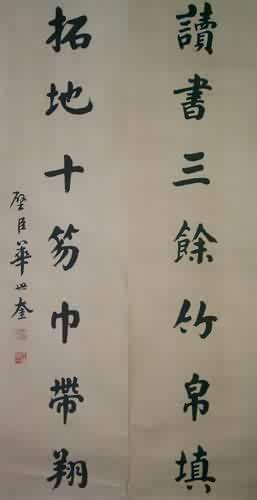 讀書三餘竹帛填
拓地十笏巾帶翔
壁臣華世奎